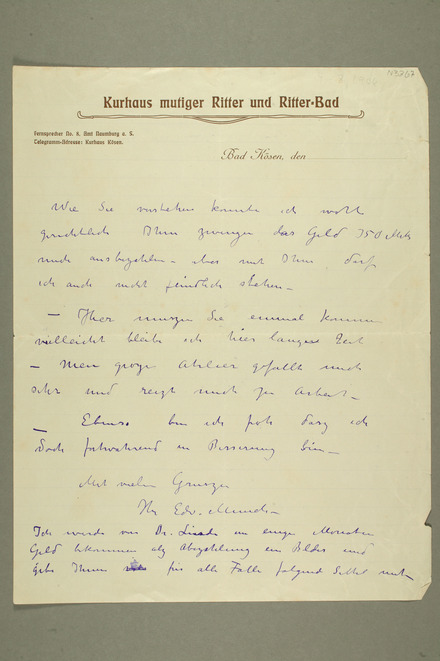 N3767
Kurhaus mutiger Ritter und Ritter-Bad
Fernsprecher No. 8. Amt Naumburg a. S.
Telegramm-Adresse: Kurhaus Kösen.
Bad Kösen, den
Wie Sie verstehen konnte ich wohl
gerichtlich Ihm zwingen das Geld 350 Mk
mich ausbezahlen – aber mit Ihm darf
ich auch nicht feindlich stehen –
– Hier mussen Sie einmal kommen
vielleicht bleibe ich hier langere Zeit
– Mein grosze Atelier gefallt mich
sehr und reizt mich zu Arbeit –
– Ebenso bin ich froh dasz ich
doch fortwahrend in Besserung bin –
Mit vielen Gruszen
Ihr Edv. Munch
Ich werde von Dr. Linde in einige Monaten
Geld bekommen als Abzahlung ein Bildes und
gebe Ihnen fur alle Falle folgend Settel mit